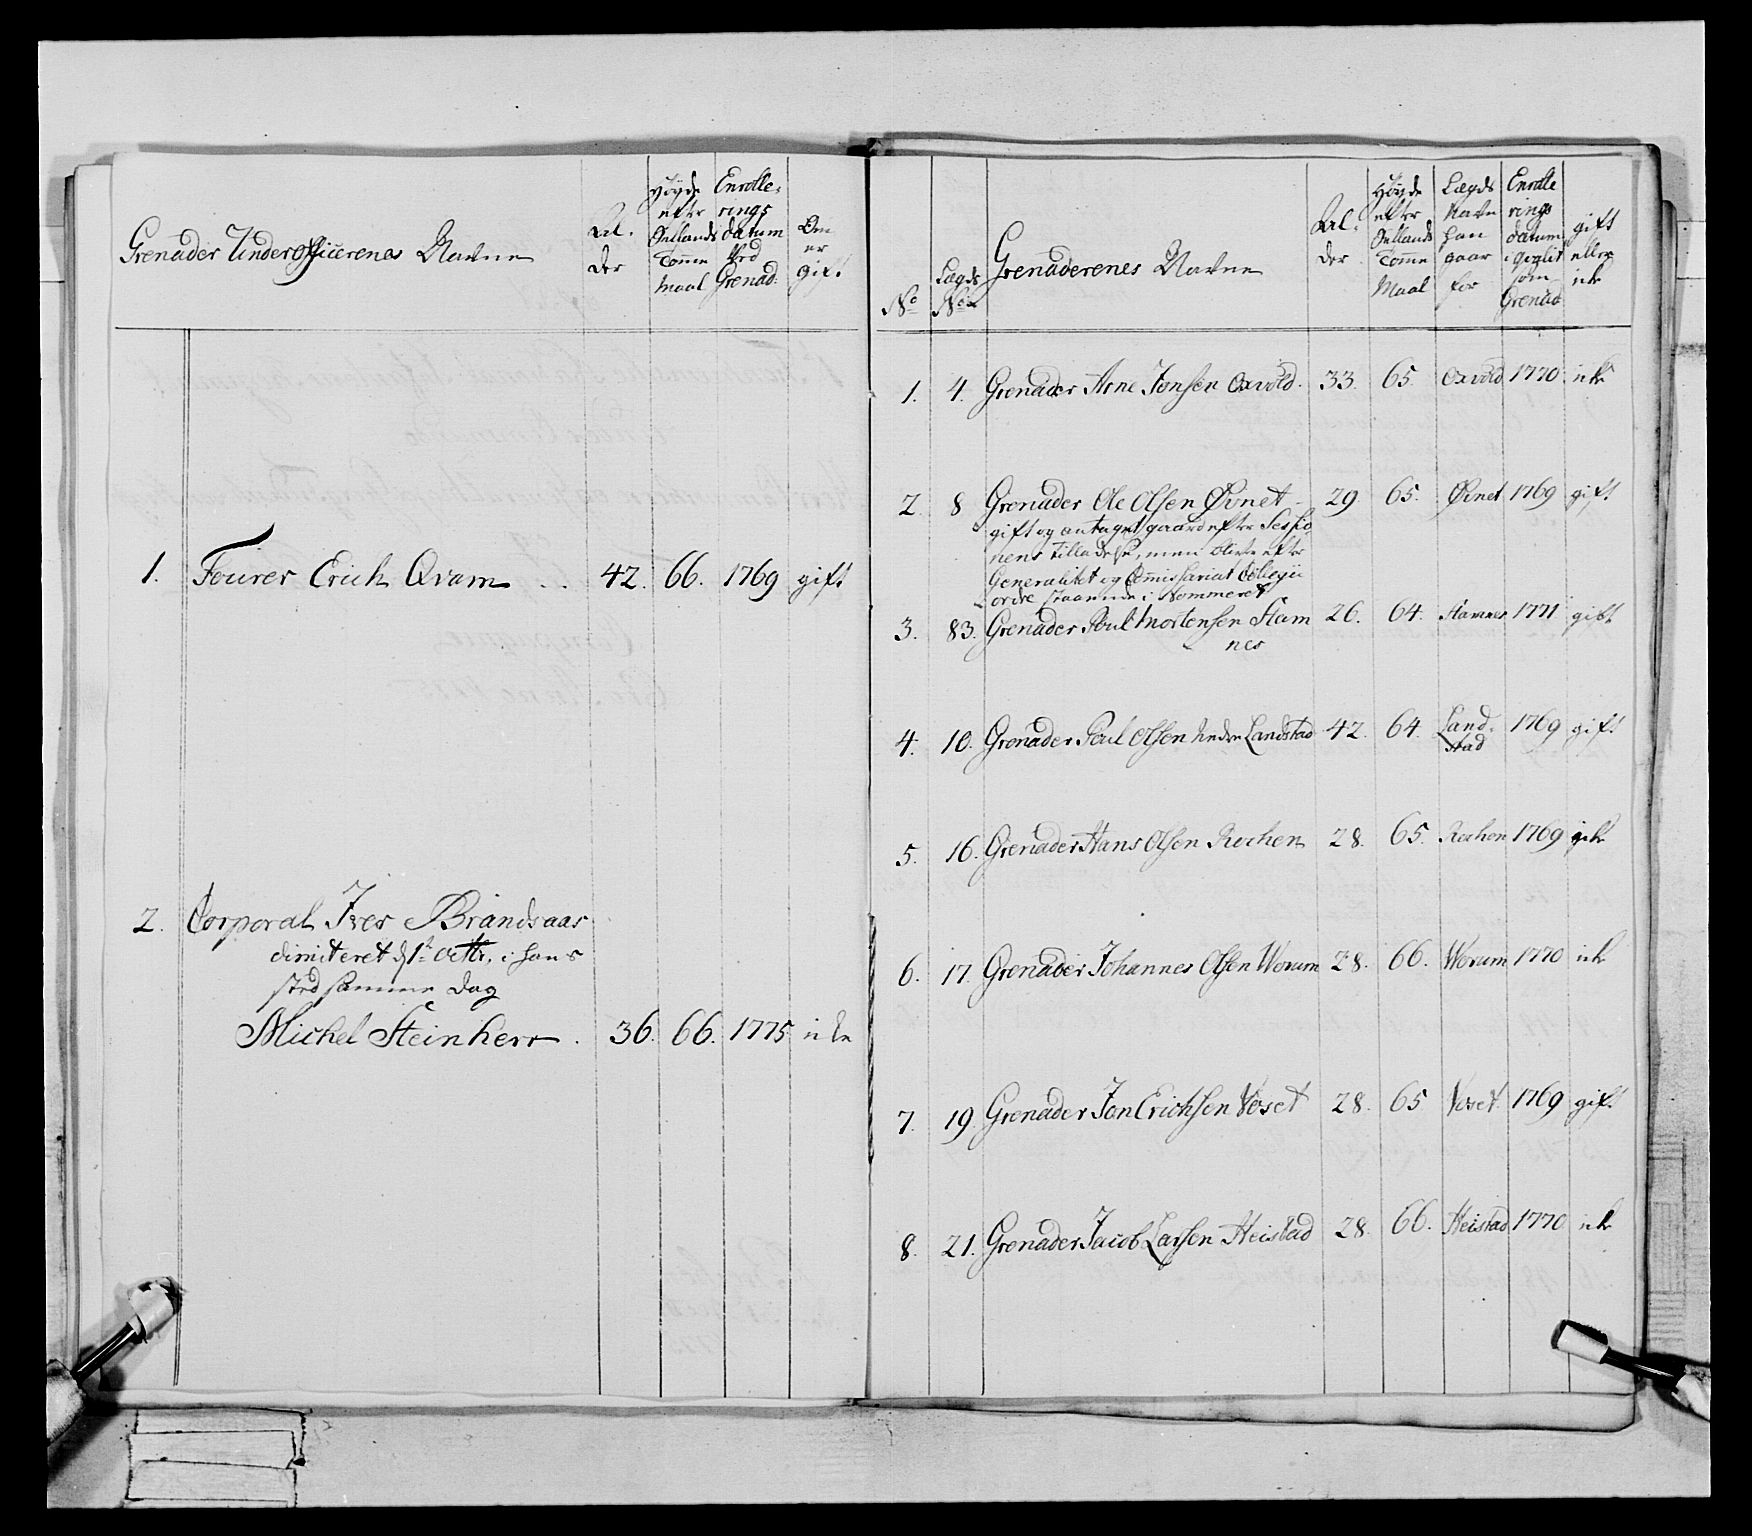 Grenader Underofficerenes Navne
Al-
der
Höyde
efter
Sellands
Tomme
Maal
Enrolle-
rings
datum
ved
Grenad:
Om
er
gift
1. Fourer Erich Qvam 42. 66. 1769 gift
2. Corporal Iver Brandsaas
dimiteret d 1t Octbr. i hans
sted samme Dag
Michel Steinherr 36. 66. 1775. icke
No
Lægds
No
Grenaderenes Navne
Al-
der
Höyde
efter
Sellands
Tomme
Maal
Lægds
Navn
han
gaar
for
Enrolle
rings
datum
som
Grenad
gift
eller
icke
1. 4. Grenader Arne Jonsen Oxvold. 33. 65. Oxvold 1770 icke
2 8 Grenader Ole Olsen Øvnet 29. 65. Øvnet 1769 gift
gift og antaget gaard efter Sessio-
nens tilladelse, men bliver efter
Generalitet og Commissariat Collegii
ordre staaende i Nommeret
3. 83. Grenader Poul Mortensen Stam 26. 64. Stamnes 1771 gift
nes
4. 10. Grenader Poul Olsen Nedre Landstad 42. 64. Land- 1769 gift
stad
5. 16. Grenader Hans Olsen Rochen 28. 65. Rochen 1769 icke
6. 17. Grenader Johannes Olsen Worum 28. 66. Worum 1770 icke
7. 19. Grenader Jon Erichsen Voset 28. 65 Voset 1769 gift
8. 21. Grenader Jacob Larsen Heistad 28. 66. Heistad 1770 icke